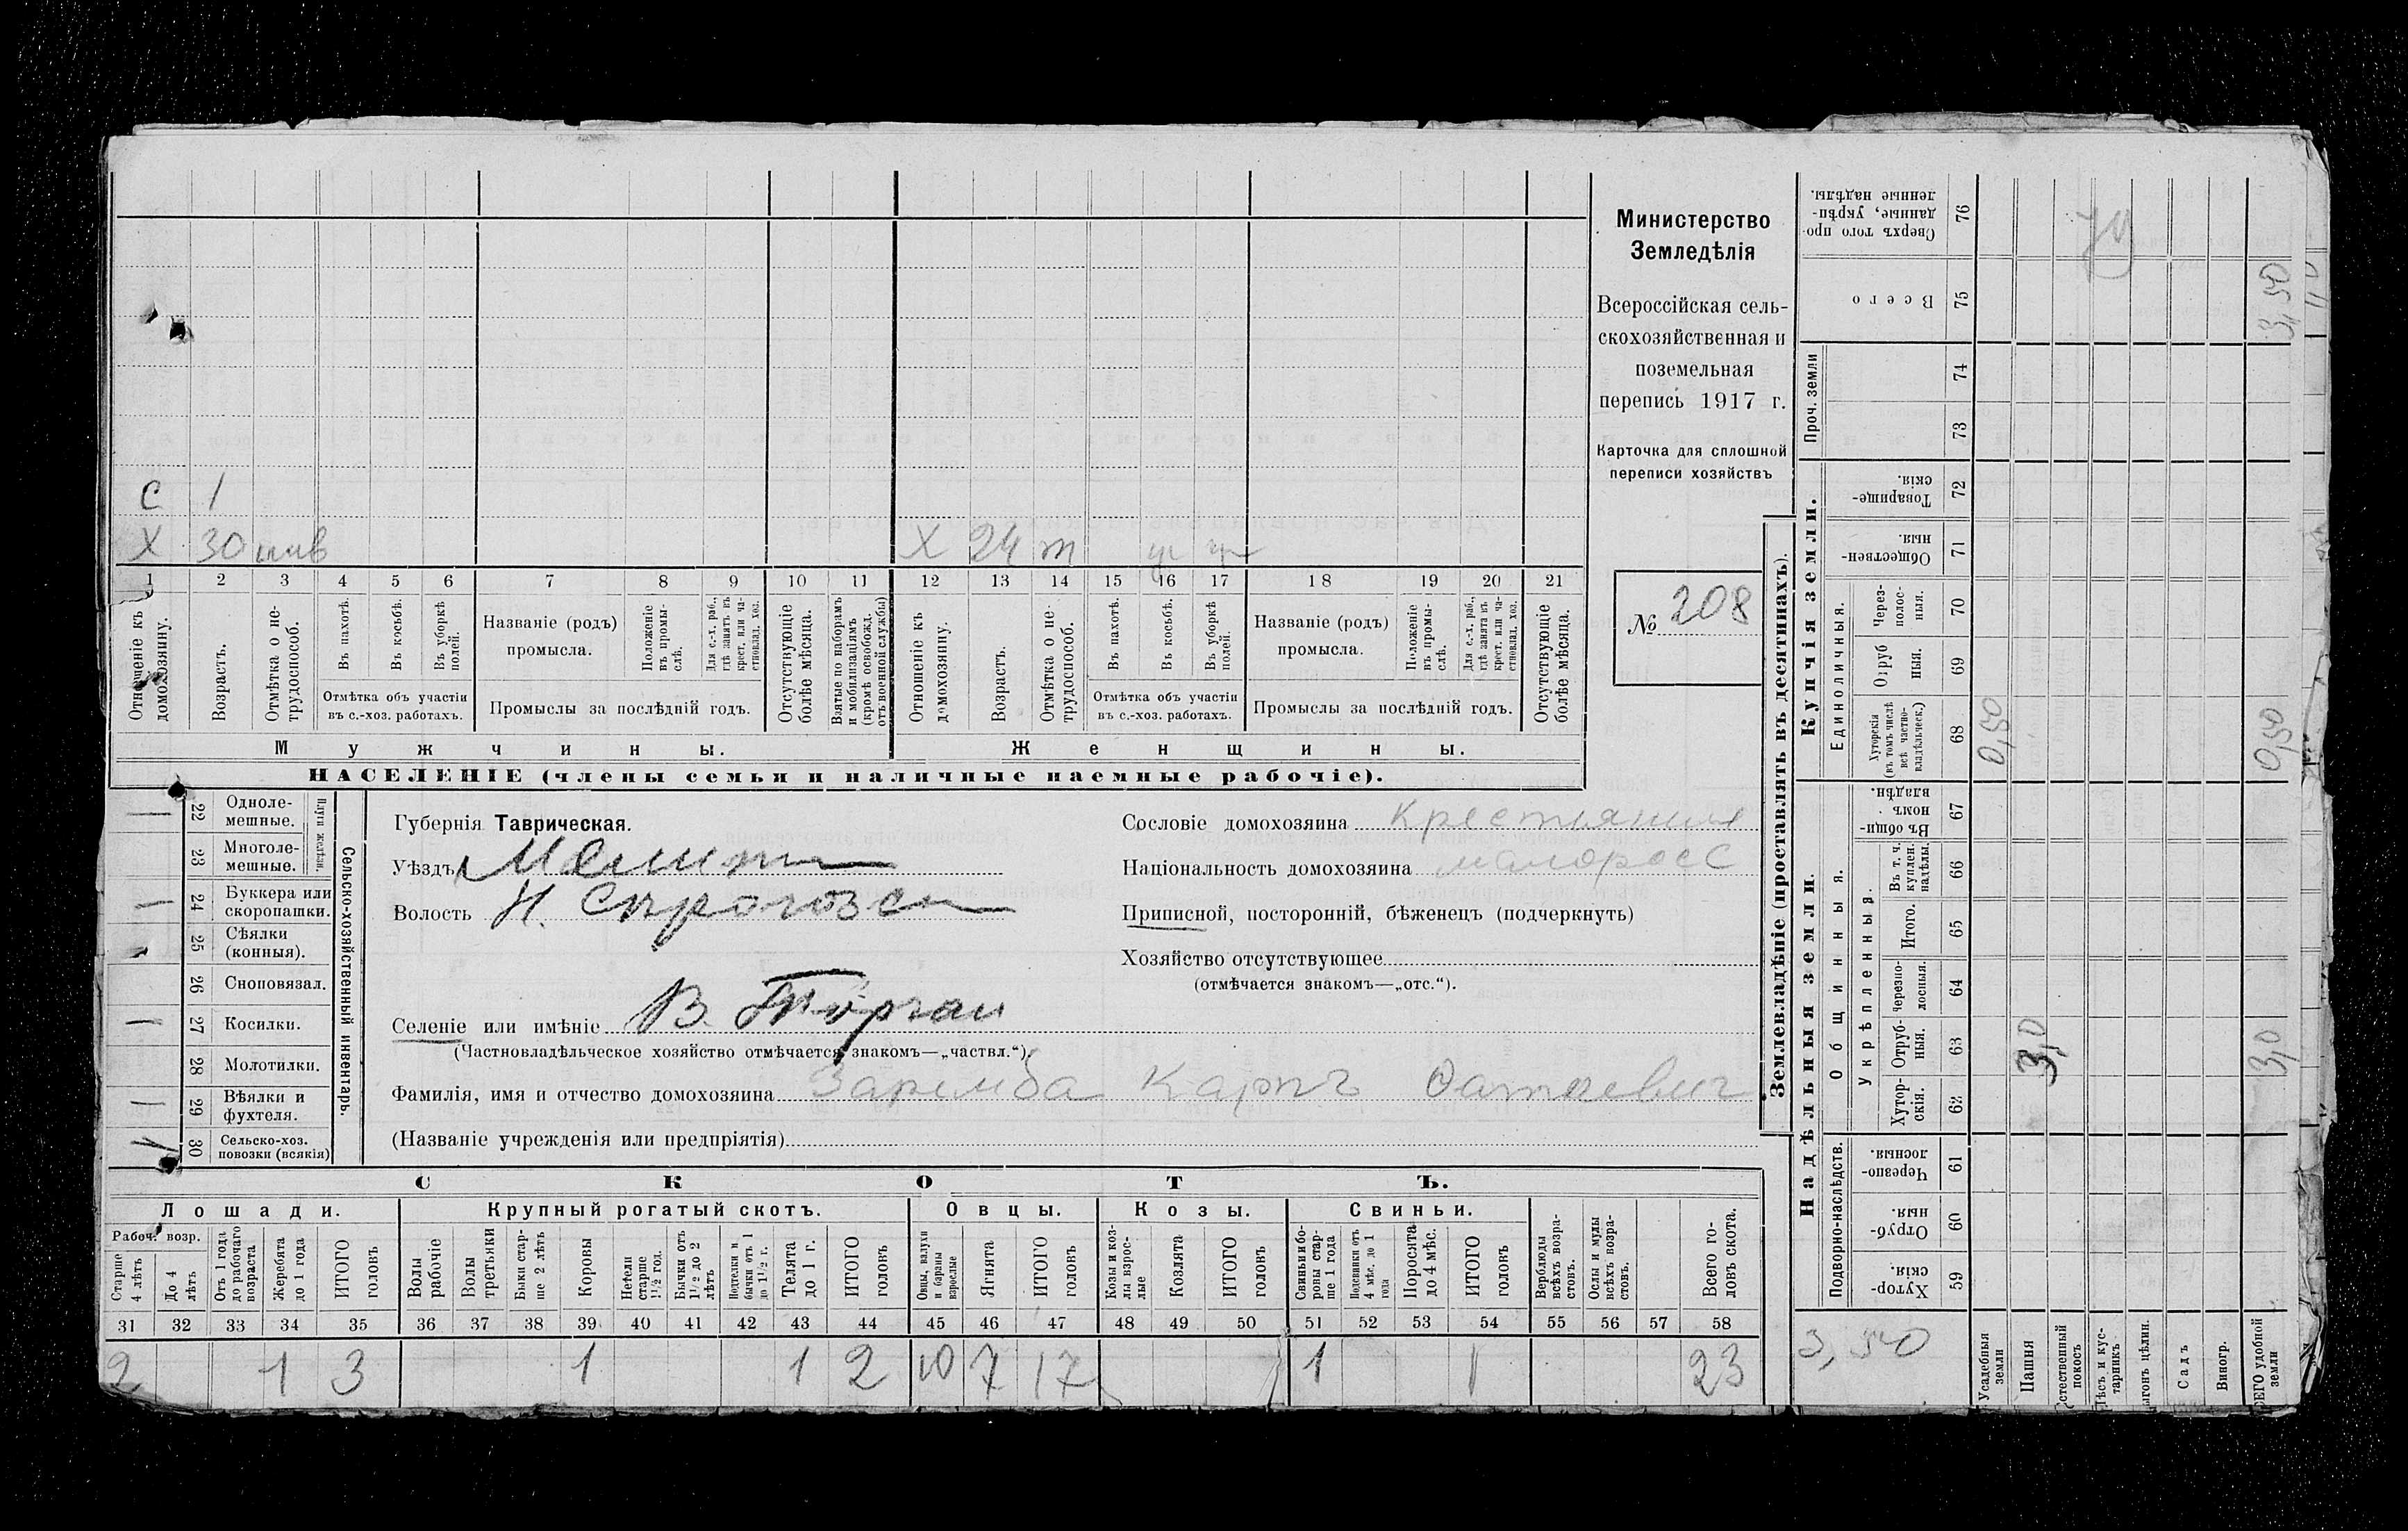 С 1
Х 30 инв Х 24 т
1 2 3 4 5 6 7 8 9 10 11 12 13 14 15 16 17 18 19 20 21
Отношеніе къ домохозяину.
Возрастъ.
Отмѣтка о не-трудоспособ.
Въ пахотѣ.
Въ косьбѣ.
Въ уборкѣ полей.
Отмѣтка объ участіи
въ с.-хоз. работахъ.
Названіе (родъ)
промысла.
Положеніе въ промы-слѣ.
Для с.-х. раб., гдѣ занятъ въ крест. или ча-стновлад. хоз.
Промыслы за послѣдній годъ.
Отсутствующіе болѣе мѣсяца.
Взятые по наборамъ и мобилизаціямъ (кромѣ освобожд. отъ военной службы)
Отношеніе къ домохозяину.
Возрастъ.
Отмѣтка о не-трудоспособ.
Въ пахотѣ.
Въ косьбѣ.
Въ уборкѣ полей.
Отмѣтка объ участіи
въ с.-хоз. работахъ.
Названіе (родъ)
промысла.
Положеніе въ промы-слѣ.
Для с.-х. раб., гдѣ занята въ крест. или ча-стновлад. хоз.
Промыслы за послѣдній годъ.
Отсутствующіе болѣе мѣсяца.
Мужчины. Женщины.
НАСЕЛЕНІЕ (члены семьи и наличные наемные рабочіе).
Министерство
Земледѣлія
Всероссійская сель-
скохозяйственная и
поземельная
перепись 1917 г.
Карточка для сплошной
переписи хозяйствъ
№ 208
22 Одноле-мешные.
23 Многоле-мешные.
Плуги желѣзн.
24 Буккера или скоропашки.
25 Сѣялки (конныя).
26 Сноповязал.
27 Косилки.
28 Молотилки.
29 Вѣялки и фухтеля.
30 Сельско-хоз. повозки (всякія)
Сельско-хозяйственный инвентарь.
Губернія Таврическая.
Уѣздъ Мелит
Волость Н. Сирогозс
Селеніе или имѣніе В. Торгаи
(Частновладѣльческое хозяйство отмѣчается знакомъ—„частвл.“).
Фамилія, имя и отчество домохозяина Заремба Карпъ
(Названіе учрежденія или предпріятія)
Сословіе домохозяина крестьянин
Національность домохозяина малоросс
Приписной, посторонній, бѣженецъ (подчеркнуть)
Хозяйство отсутствующее
(отмѣчается знакомъ—„отс.“).
СКОТЪ.
Лошади. Крупный рогатый скотъ. Овцы. Козы. Свиньи.
Рабоч. возр.
Старше 4 лѣтъ
До 4 лѣтъ
Отъ 1 года до рабочаго возраста
Жеребята до 1 года
ИТОГО головъ
Волы рабочіе
Волы третьяки
Быки стар-ше 2 лѣтъ
Коровы
Нетели старше 1½ год.
Бычки отъ 1½ до 2 лѣтъ
Подтелки и бычки отъ 1 до 1½ г.
Телята до 1 г.
ИТОГО головъ
Овцы, валухи и бараны взрослые
Ягнята
ИТОГО головъ
Козы и коз-лы взрос-лые
Козлята
ИТОГО головъ
Свиньи и бо-ровы стар-ше 1 года
Подсвинки отъ 4 мѣс. до 1 года
Поросята до 4 мѣс.
ИТОГО головъ
Верблюды всѣхъ возра-стовъ.
Ослы и мулы всѣхъ возра-стовъ.
Всего го-ловъ скота.
31 32 33 34 35 36 37 38 39 40 41 42 43 44 45 46 47 48 49 50 51 52 53 54 55 56 57 58
2 1 3 1 1 2 10 7 17 1 1 23
Землевладѣніе (проставлять въ десятинахъ).
Купчія земли.
Надѣльныя земли.
Сверхъ того про-данные, укрѣп-ленные надѣлы. 76
Всего 75 3,50
Проч. земли 74 73
Товарище-скія. 72
Обществен-ныя. 71
Единоличныя.
Через-полос-ныя. 70
Отруб-ныя. 69
Хуторскія (въ томъ числѣ всѣ частно-владѣльческ.) 68 0,50 0,50
Общинныя.
Въ общи-номъ владѣн. 67
Укрѣпленныя.
Въ т. ч. куплен. надѣлы. 66
Итого. 65
Черезпо-лосныя. 64
Отруб-ныя. 63 3,0 3,0
Хутор-скія. 62
Подворно-наслѣдств.
Черезпо-лосныя. 61
Отруб-ныя. 60
Хутор-скія. 59
3,50
Усадебныя земли
Пашня
Естественный покосъ
Лѣсъ и кус-тарникъ
Выгонъ цѣлин.
Садъ
Виногр.
ВСЕГО удобной земли